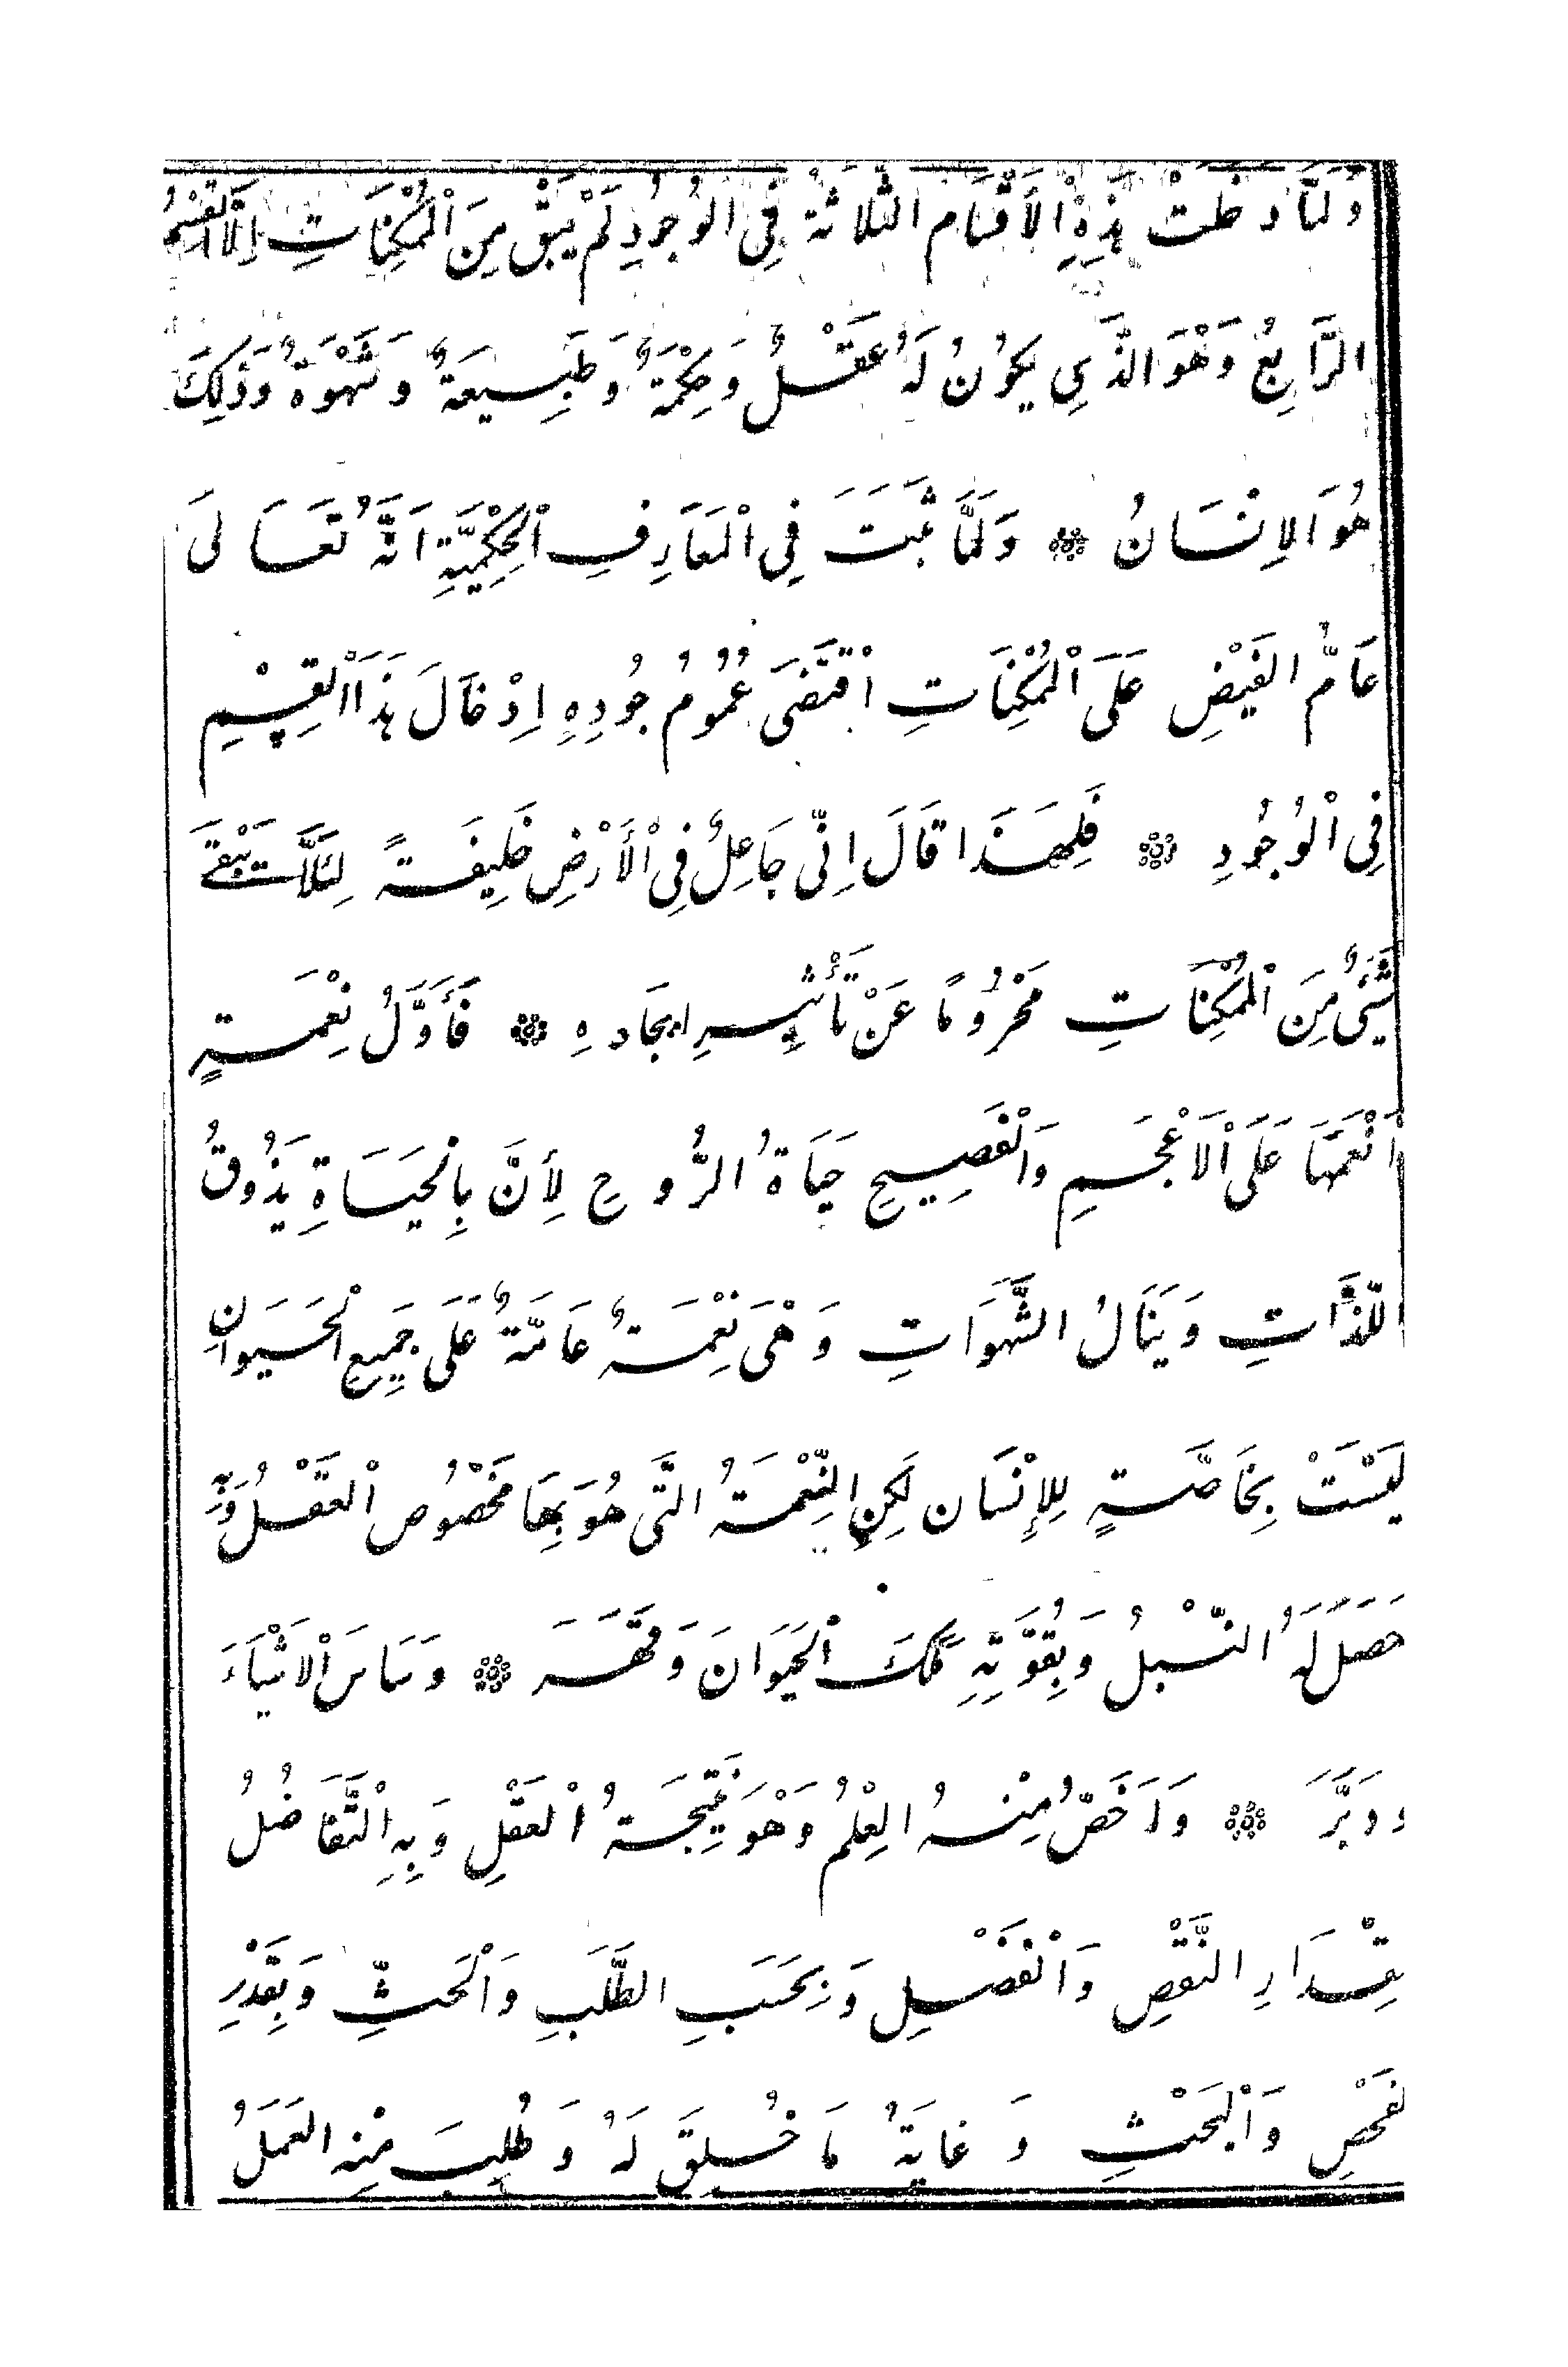 وَلَمَّا دَخَلَتْ هٰذِهِ الْأَقْسَام الثَّلَاثَةُ فِي الْوُجُودِ لَمْ يَبْقَ مِنَ الْمُمْكِنَاتِ اِلَّا الْقِسْمُ
الرَّابِعُ وَهْوَ الَّذِي يَكُونُ لَهُ عَقْلٌ وَحِكْمَةٌ وَطَبِيعَةٌ وَشَهْوَةٌ وَذٰلِكَ
هُوَ الْاِنْسَانُ ۞ وَلَمَّا ثَبَتَ فِي الْمَعَارِفِ الْحِكْمِيَّةِ اَنَّهُ تَعَالَى
عَامُّ الفَيْضِ عَلَى الْمُمْكِنَاتِ اقْتَضَى عُمُومُ جُودِهِ اِدْخَالَ هٰذَا الْقِسْمِ
فِي الْوُجُودِ ۞ فَلِهَذَا قَالَ اِنِّي جَاعِلٌ فِي الْأَرْضِ خَلِيفَةً لِئَلَّا يَبْقَى
شَيْءٌ مِنَ الْمُمْكِنَاتِ مَحْرُومًا عَنْ تَأْثِيرِ اِيجَادِهِ ۞ فَأَوَّلُ نِعْمَةٍ
أَنْعَمَهَا عَلَى الْاَعْجَمِ وَالْفَصِيحِ حَيَاةُ الرُّوحِ لِأَنَّ بِالْحَيَاةِ يَذُوقُ
اللَّذَّاتِ وَيَنَالُ الشَّهَوَاتِ وَهْيَ نِعْمَةٌ عَامَّةٌ عَلَى جَمِيعِ الْحَيَوَانِ
لَيْسَتْ بِخَاصَّةٍ لِلْإِنْسَان لَكِنِ النِّعْمَةُ الَّتَى هُوَ بِهَا مَخْصُوص الْعَقْلُ وَبِهِ
حَصَلَ لَهُ النُّبْلُ وَبِقُوَّتِهِ مَلَكَ الْحَيَوَانَ وَقَهَرَ ۞ وَسَاسَ الْاَشْيَاءَ
وَدَبَّرَ ۞ وَاَخَصُّ مِنْهُ العِلْمُ وَهْوَ نَتِيجَةُ الْعَقْلِ وَبِهِ الْتَّفَاضُلُ
بِمِقْدَارِ النَّقْصِ وَالْفَضْلِ وَبِحَسَبِ الطَّلَبِ وَالْحَثِّ وَبِقَدْرِ
الفَحْصِ وَالْبَحْثِ وَغَايَةُ مَا خُلِقَ لَهُ وَطُلِبَ مِنْهِ العَمَلُ